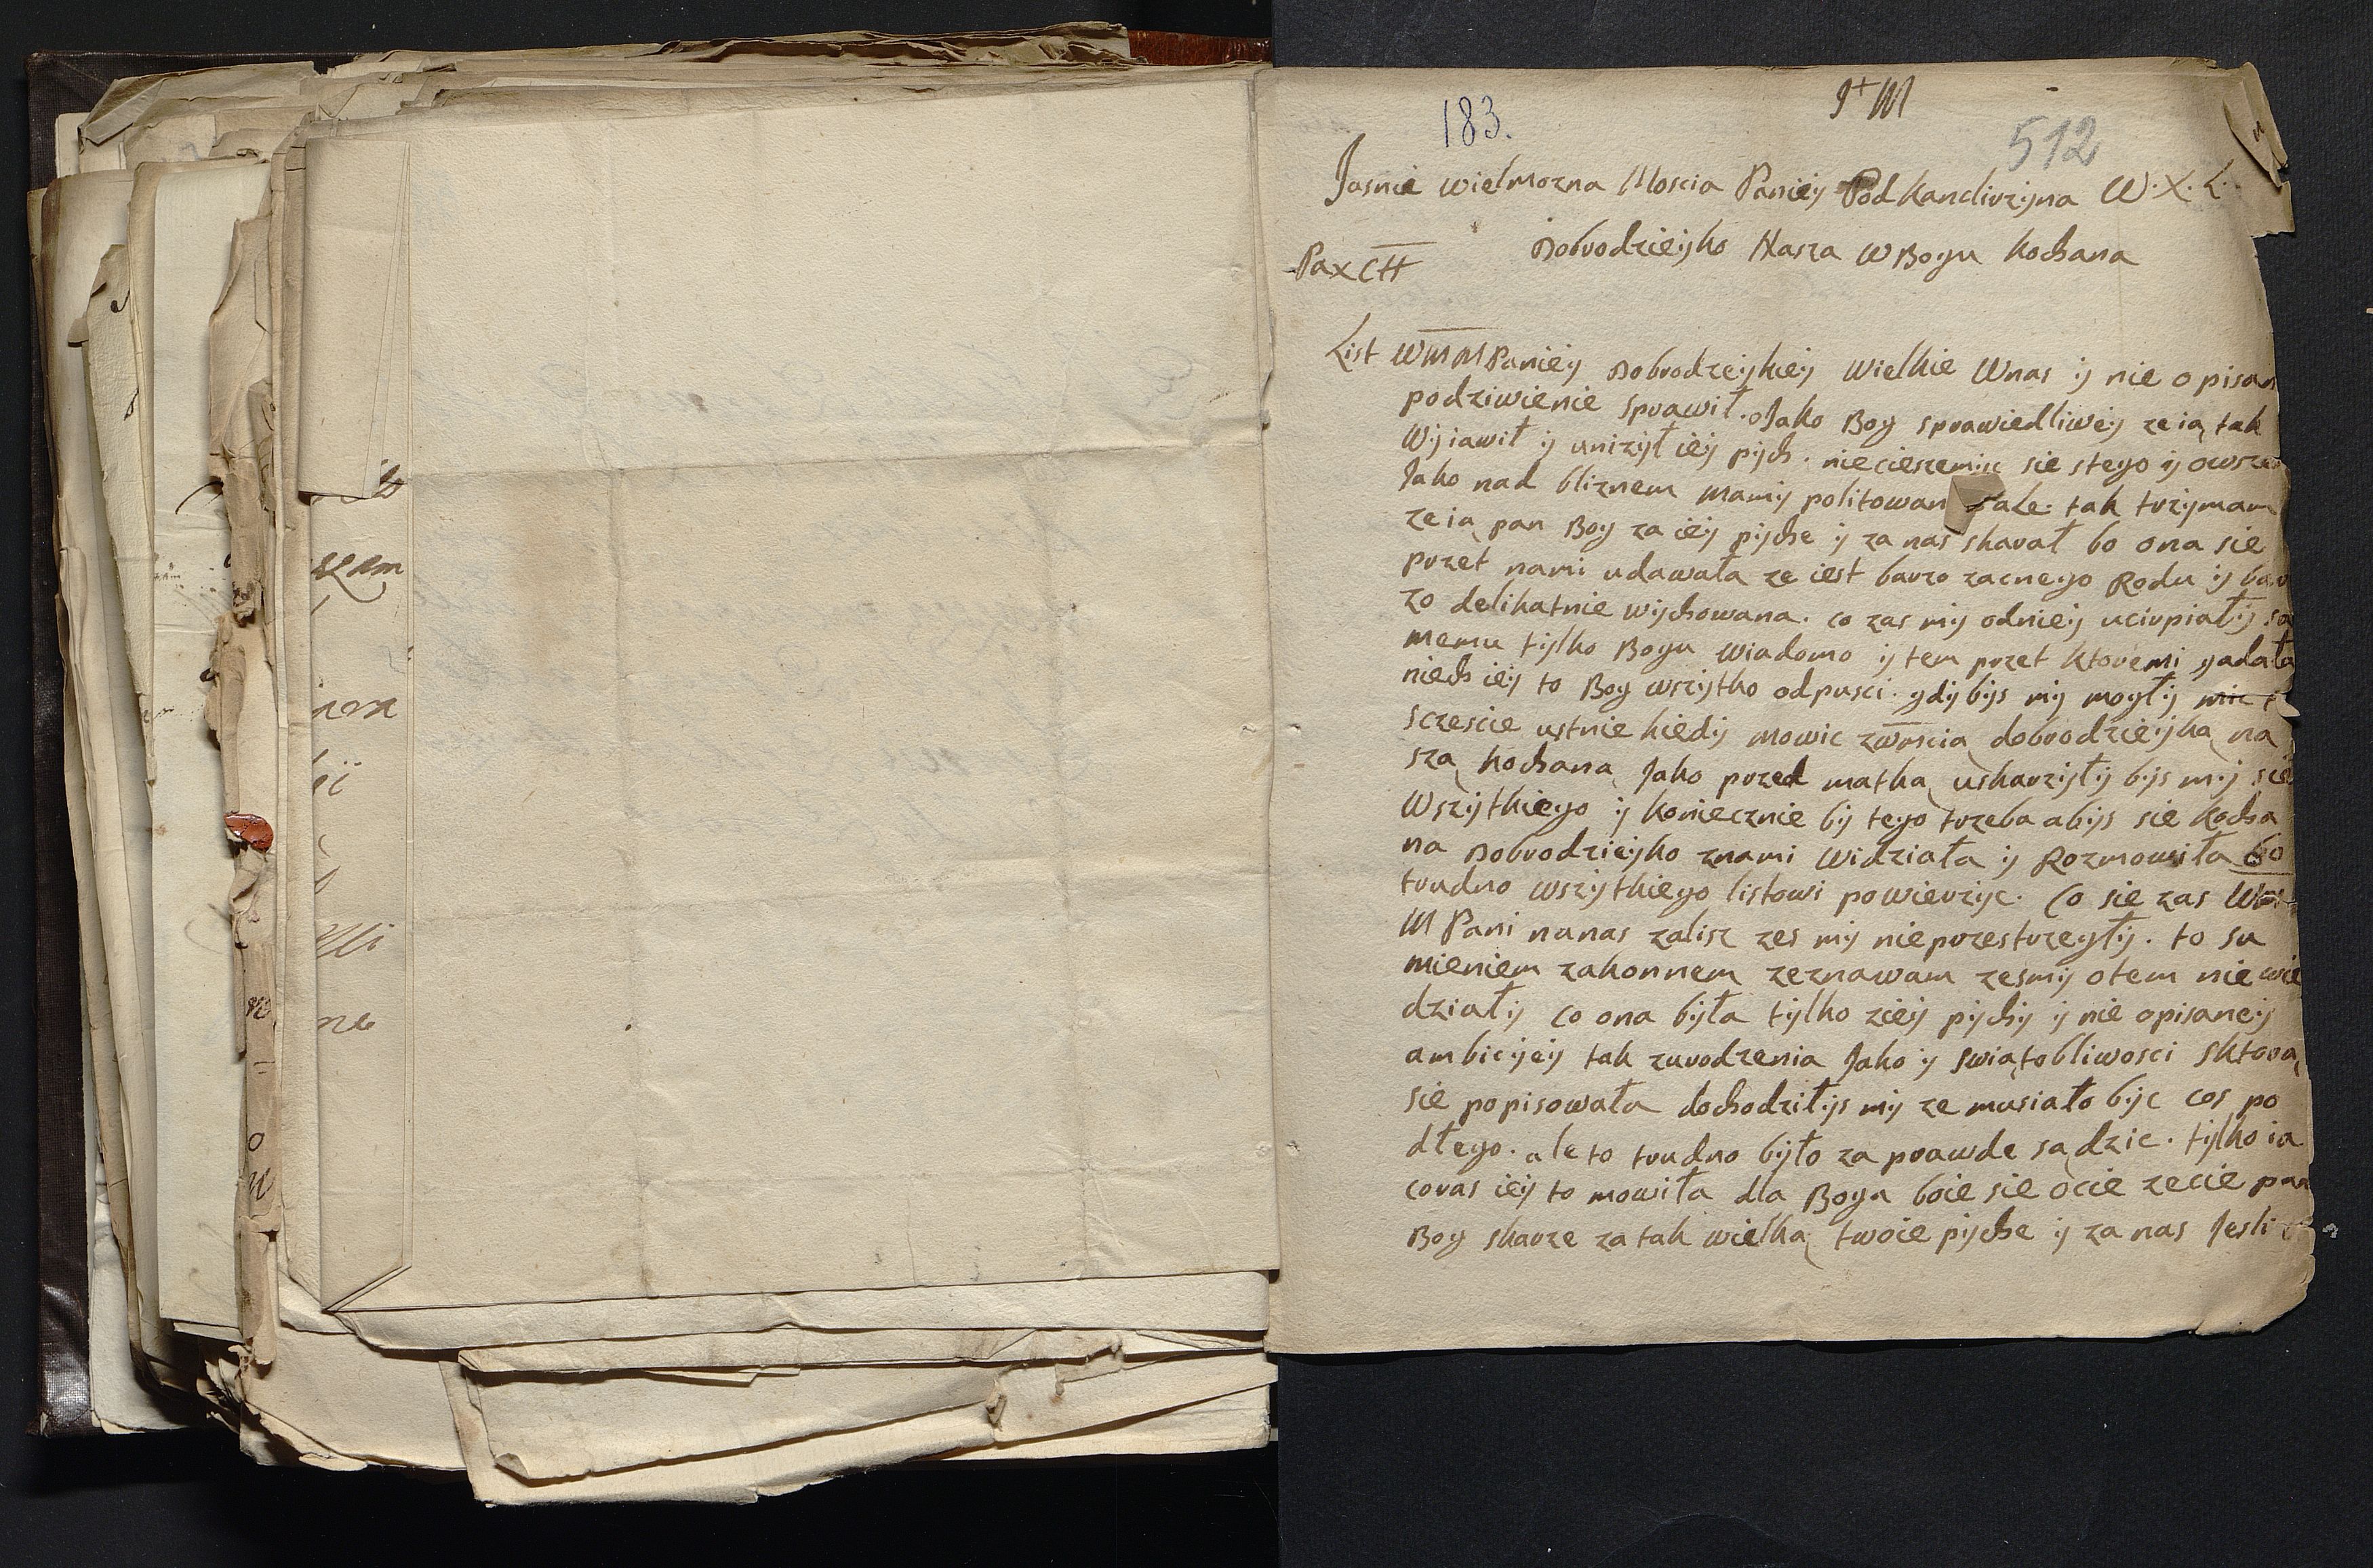 J+M
183.
512
Jasnie wielmozna Moscia Panieÿ Podkanclirzÿna W. X. L.
Dobrodzieÿko Nasza W Bogu kochana
Pax CH
List WMMPanieÿ Dobrodzeÿkieÿ wielkie Wnas ÿ nie opisan
podziwienie sprawił. Jako Bog sprawiedliweÿ ze ią tak
Wÿiawił ÿ unizÿł ieÿ pÿch. niecieszemÿc sie stego ÿ owsze
Jako nad bliznem mamÿ politowan ale tak trzÿmam
ze ią pan Bog za ieÿ pÿche ÿ za nas skarał bo ona sie
przet nami udawała ze iest barzo zacnego Rodu ÿ bar
zo delikatnie wÿchowana. co zas mÿ odnieÿ ucirpiałÿ sa
memu tÿlko Bogu wiadomo ÿ tem przet ktoremi gadała
niech ieÿ to Bog wszÿtko odpusci. gdÿ bÿs mÿ mogłÿ mic
sczescie ustnie kiedÿ mowic zwmscia dobrodzieÿką na
szą kochaną Jako przed matką uskarzÿłÿ bÿs mÿ sie
Wszÿtkiego ÿ koniecznie bÿ tego trzeba abÿs sie kocha
na Dobrodzieÿko znami widziała ÿ Rozmowiła bo
trudno wszÿtkiego listowi powierzÿc. Co sie zas Wm
M Pani nanas zalisz zes mÿ nieprzestrzegłÿ. to su
mieniem zakonnem zeznawam zesmÿ otem nie wie
działÿ co ona bÿła tÿlko zieÿ pÿchÿ ÿ nie opisaneÿ
ambicÿeÿ tak zurodzenia Jako ÿ swiątobliwosci sktorą
sie popisowała dochodziłÿs mÿ ze musiało bÿc cos po
dłego. ale to trudno bÿło za prawde sądzic. tÿlko ia
coras ieÿ to mowiła dla Boga boie sie ocie ze cie pan
Bog skarze za tak wielką twoie pÿche ÿ za nas Jesli